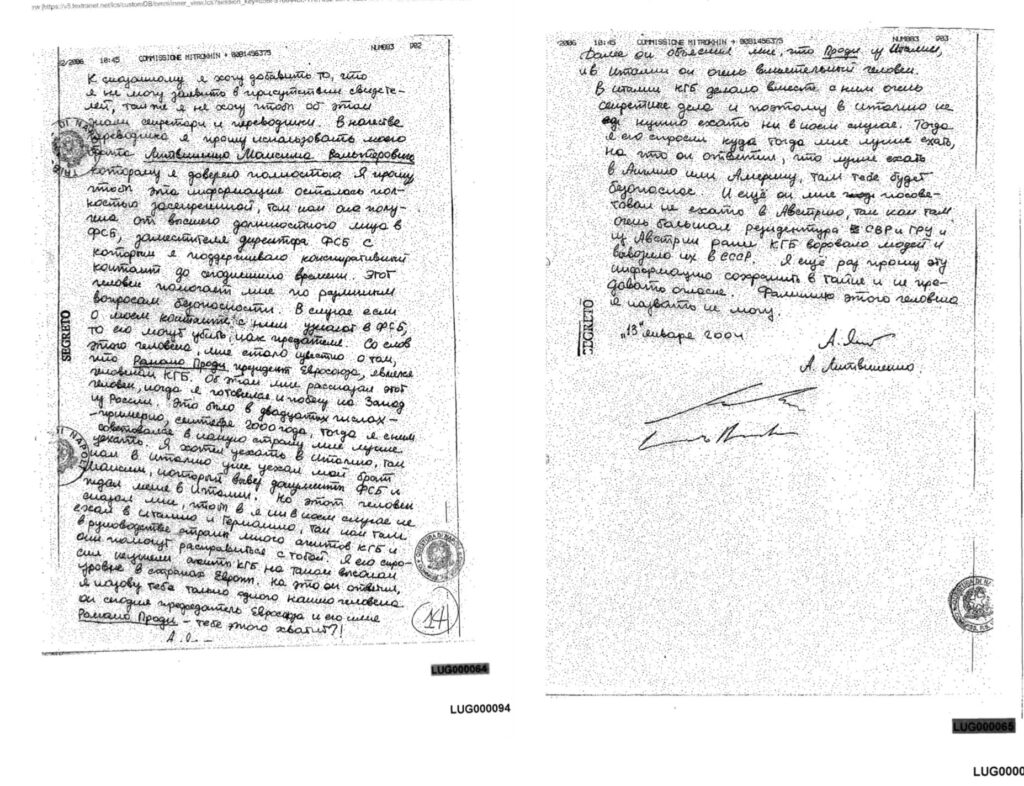 rw [https://v5.lextranet.net/lcs/customDB/omni/inner_view.lcs?session_key=
2/2006 10:45 COMMISSIONE MITROKHIN → 0081456375 NUM803 D02
К сказанному я хочу добавить то, что
я не могу заявить в присутствии свидете-
лей, также я не хочу чтоб об этом
знали секретари и переводчики. В качестве
переводчика я прошу использовать моего
брата Литвиненко Максима Вальтеровича
которому я доверяю полностью. Я прошу
чтобы эта информация осталась пол-
ностью засекреченной, так как она полу-
чена от высшего должностного лица в
ФСБ, заместителя директора ФСБ с
которым я поддерживаю конспиративный
контакт до сегодняшнего времени. Этот
человек помогает мне по различным
вопросам безопасности. В случае если
о моем контакте с ним узнают в ФСБ,
то его могут убить, как предателя. Со слов
этого человека, мне стало известно о том,
что Романо Проди президент Евросоюза, являлся
человеком КГБ. Об этом мне рассказал этот
человек, когда я готовился к побегу на Запад
из России. Это было в двадцатых числах -
- примерно, сентября 2000 года, тогда я с ним
советовался в какую страну мне лучше
уехать. Я хотел уехать в Италию, так
как в Италию уже уехал мой брат
Максим, который вывез документы ФСБ и
ждал меня в Италии. Но этот человек
сказал мне, чтоб я ни в коем случае не
ехал в Италию и Германию, так как там
в руководстве стран много агентов КГБ и
они помогут расправиться с тобой. Я его спро-
сил неужели агенты КГБ на таком высоком
уровне в странах Европы. На это он ответил,
я назову тебе только одного нашего человека
он сегодня председатель Евросоюза и его имя
Романо Проди - тебе этого хватит?!
SEGRETO
14
LUG000064
LUG000094
2006 10:45 COMMISSIONE MITROKHIN → 0081456375 NUM803 D03
Далее он объяснил мне, что Проди из Италии,
и в Италии он очень влиятельный человек.
В Италии КГБ делало вместе с ним очень
секретные дела и поэтому в Италию не
нужно ехать ни в коем случае. Тогда
я его спросил куда тогда мне лучше ехать,
на что он ответил, что лучше ехать
в Англию или Америку, там тебе будет
безопаснее. И ещё он мне посове-
товал не ехать в Австрию, так как там
очень большая резидентура СВР и ГРУ и
из Австрии ранее КГБ воровало людей и
вывозило их в СССР. Я ещё раз прошу эту
информацию сохранить в тайне и не пре-
давать огласке. Фамилию этого человека
я назвать не могу.
SEGRETO
"13" января 2004
А. Литвиненко.
LUG000065
LUG0000